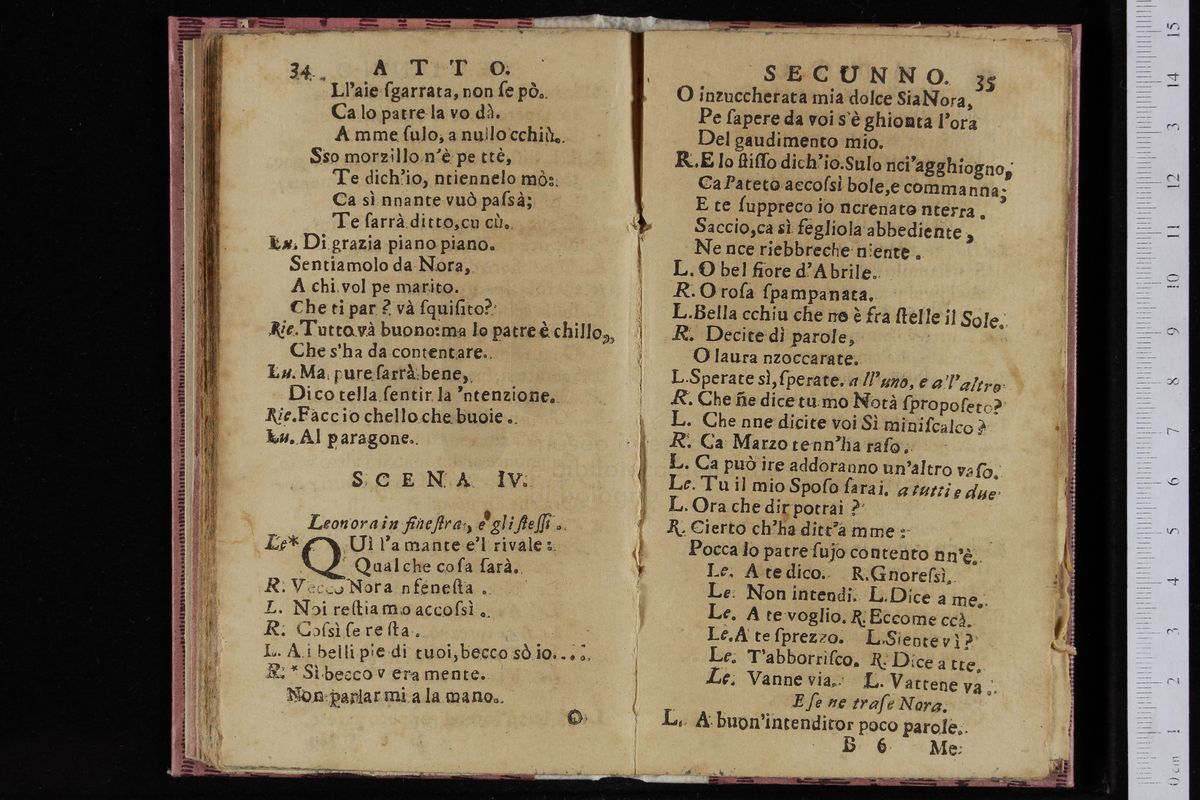 34. ATTO.
Ll'aie ſgarrata, non ſe pò.
Ca lo patre la vo dà.
A mme ſulo, a nullo cchiù.
Sso morzillo n'è pe ttè,
Te dich'io, ntiennelo mò:
Ca sì nnante vuò paſsà;
Te ſarrà ditto, cu cù.
Lu. Di grazia piano piano.
Sentiamolo da Nora,
A chi vol pe marito.
Che ti par? và ſquiſito?
Ric. Tutto và buono: ma lo patre è chillo,
Che s'ha da contentare.
Lu. Ma pure ſarrà bene,
Dico tella ſentir la 'ntenzione.
Ric. Faccio chello che buoie.
Lu. Al paragone.
SCENA IV.
Leonora in fineſtra, e gli ſteſſi.
Le* QUì l'amante e'l rivale:
Qualche coſa ſarà.
R. Vecco Nora nfeneſta.
L. Noi reſtiamo accoſsì.
R. Coſsì ſe reſta.
L. A i belli pie di tuoi, becco sò io....
R. * Sì becco veramente.
Non parlarmi a la mano.
O
SECUNNO. 35
O inzuccherata mia dolce Sia Nora,
Pe ſapere da voi s'è ghionta l'ora
Del gaudimento mio.
R. E lo ſtiſſo dich'io. Sulo nci'agghiogno,
Ca Pateto accoſsì bole, e commanna;
E te ſuppreco io ncrenato nterra.
Saccio, ca sì fegliola abbediente,
Ne nce riebbreche niente.
L. O bel fiore d'Abrile.
R. O roſa ſpampanata.
L. Bella cchiu che no è fra ſtelle il Sole.
R. Decite dì parole,
O laura nzoccarate.
L. Sperate sì, ſperate. a ll'uno, e a l'altro
R. Che ñe dice tu mo Notà ſpropoſeto?
L. Che nne dicite voi Sì miniſcalco?
R. Ca Marzo te nn'ha raſo.
L. Ca può ire addoranno un'altro vaſo.
Le. Tu il mio Spoſo ſarai. a tutti e due
L. Ora che dir potrai?
R. Cierto ch'ha ditt'a mme:
Pocca lo patre ſujo contento nn'è.
Le. A te dico. R. Gnoreſsì.
Le. Non intendi. L. Dice a me.
Le. A te voglio. R. Eccome ccà.
Le. A te ſprezzo. L. Siente vì?
Le. T'abborriſco. R. Dice a tte.
Le. Vanne via. L. Vattene va.
E ſe ne traſe Nora.
L. A buon'intenditor poco parole.
B 6 Me